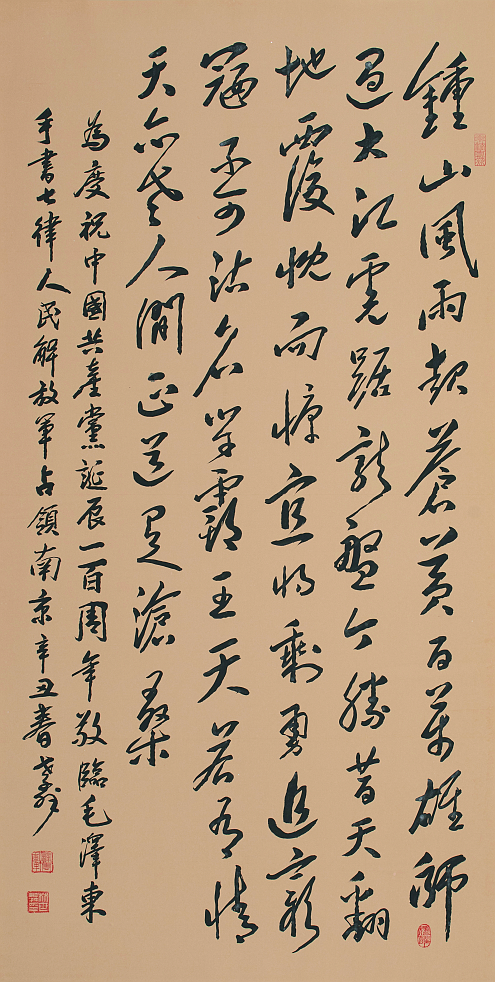 鍾山風雨起蒼黃百萬雄師
過大江虎踞龍盤今勝昔天翻
地覆慨而慷宜將剩勇追窮
寇不可沽名學霸王天若有情
天亦老人間正道是滄桑
為慶祝中國共產黨誕辰一百周年敬臨毛澤東
手書七律人民解放軍占領南京辛丑春